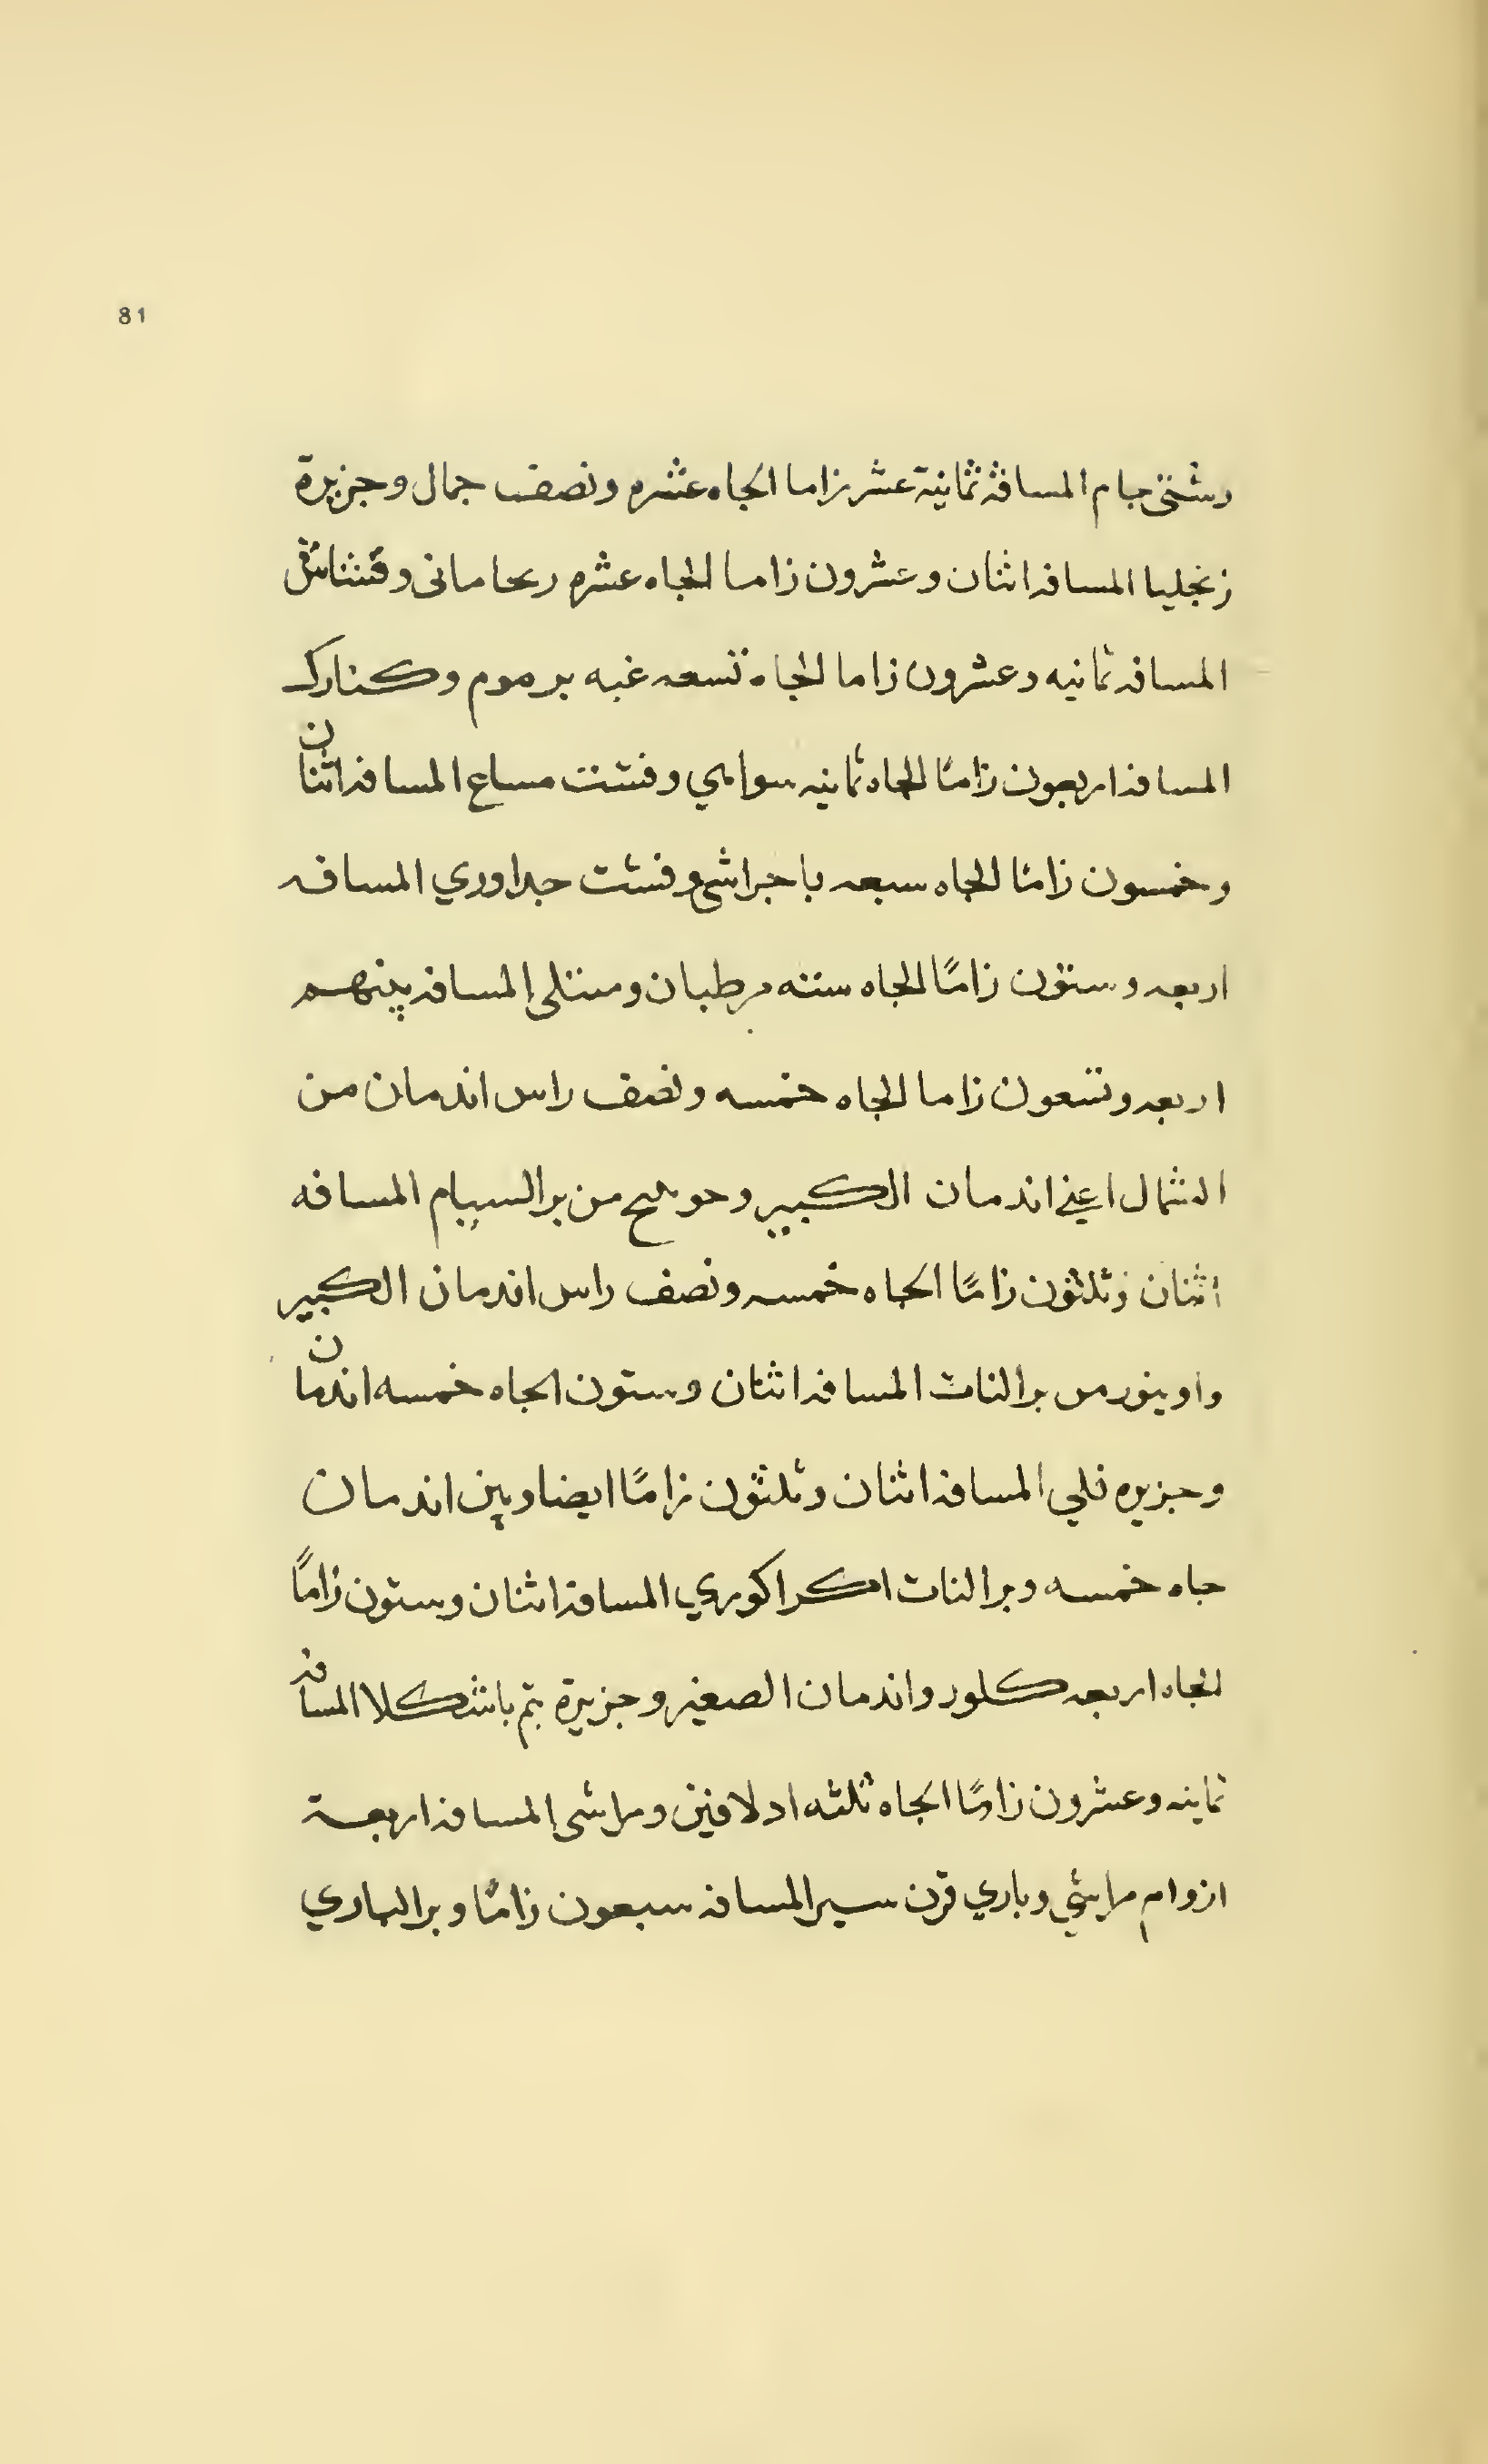 81
وشتى جام المسافة ثمانية عشر زاما الجاه عشره ونصف جمال وجزيرة
زنجليا المسافه اثنان وعشرون زاما الجاه عشره رحامانى
المسافه ثمانيه وعشرون زاما الجاه تسعه غبه برموم وكنارك
المسافه اربعون زامًا الجاه ثمانيه سوامي وفشت مساع المسافه اثنان
وخمسون زامًا الجاه سبعه باجراشى وفشت جداوري المسافه
اربعه وستون زامًا الجاه سته مرطبان ومنتلى المسافه بينهم
اربعه وتسعون زاما الجاه خمسه ونصف راس اندمان من
الشمال اعني اندمان الكبير من بر السيام المسافه
اثنان وثلثون زامًا الجاه خمسه ونصف راس اندمان الكبير
من بر النات المسافه اثنان وستون الجاه خمسه اندمان
وجزيره فلي المسافه اثنان وثلثون زامًا ايضا وبين اندمان
جاه خمسه وبر النات اكراكوري المسافه اثنان وستون زامًا
الجاه اربعه كلور واندمان الصغير وجزيرة بتم باشكلا المسافه
ثمانيه وعشرون زامًا الجاه ثلثه ادلافنين ومراشى المسافه اربعة
ازوام مراشي وباري قرن سير المسافه سبعون زامًا وبر الماري